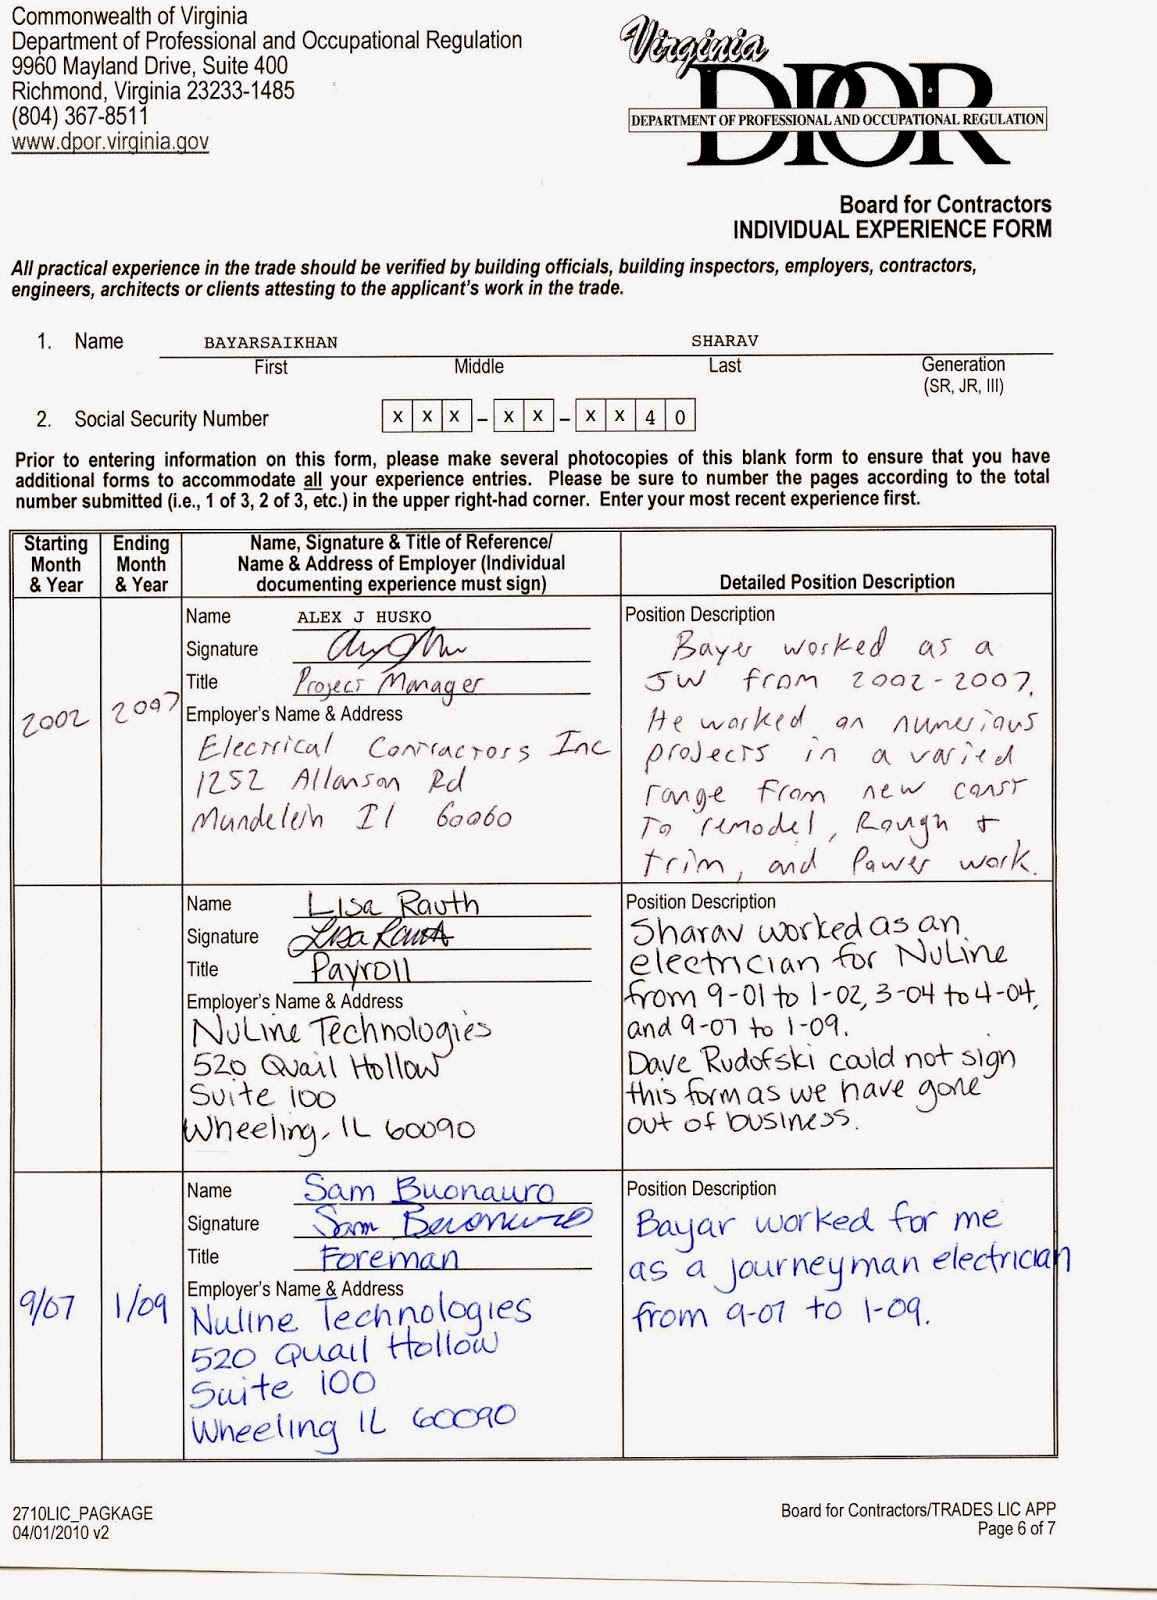 Commonwealth of Virginia
Department of Professional and Occupational Regulation
9960 Mayland Drive, Suite 400
Richmond, Virginia 23233-1485
(804) 367-8511
www.dpor.virginia.gov
Virginia
DPOR
DEPARTMENT OF PROFESSIONAL AND OCCUPATIONAL REGULATION
Board for Contractors
INDIVIDUAL EXPERIENCE FORM
All practical experience in the trade should be verified by building officials, building inspectors, employers, contractors,
engineers, architects or clients attesting to the applicant's work in the trade.
1. Name BAYARSAIKHAN SHARAV
First Middle Last Generation
(SR, JR, III)
2. Social Security Number X X X - X X - X X 4 0
Prior to entering information on this form, please make several photocopies of this blank form to ensure that you have
additional forms to accommodate all your experience entries. Please be sure to number the pages according to the total
number submitted (i.e., 1 of 3, 2 of 3, etc.) in the upper right-had corner. Enter your most recent experience first.
Starting
Month
& Year
Ending
Month
& Year
Name, Signature & Title of Reference/
Name & Address of Employer (Individual
documenting experience must sign)
Detailed Position Description
2002
2007
Name ALEX J HUSKO
Signature
Title Project Manager
Employer's Name & Address
Electrical Contractors Inc
1252 Allanson Rd
Mundelein Il 60060
Position Description
Bayer worked as a
JW from 2002-2007.
He worked on numerious
projects in a varied
range from new const
to remodel, Rough +
trim, and Power work.
Name Lisa Rauth
Signature Lisa Rauth
Title Payroll
Employer's Name & Address
NuLine Technologies
520 Quail Hollow
Suite 100
Wheeling, IL 60090
Position Description
Sharav worked as an
electrician for NuLine
from 9-01 to 1-02, 3-04 to 4-04,
and 9-07 to 1-09.
Dave Rudofski could not sign
this form as we have gone
out of business.
9/07
1/09
Name Sam Buonauro
Signature Sam Buonauro
Title Foreman
Employer's Name & Address
Nuline Technologies
520 Quail Hollow
Suite 100
Wheeling IL 60090
Position Description
Bayar worked for me
as a journeyman electrician
from 9-07 to 1-09.
2710LIC_PAGKAGE
04/01/2010 v2
Board for Contractors/TRADES LIC APP
Page 6 of 7